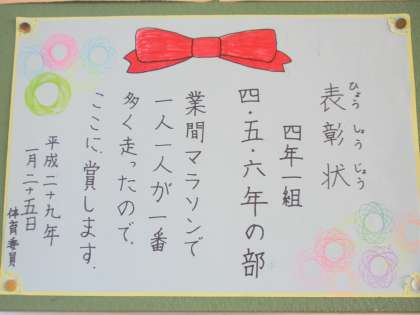 表彰状
ひょうしょうじょう
四年一組
四・五・六年の部
業間マラソンで
一人一人が一番
多く走ったので、
ここに、賞します。
平成二十九年
一月二十五日
体育委員